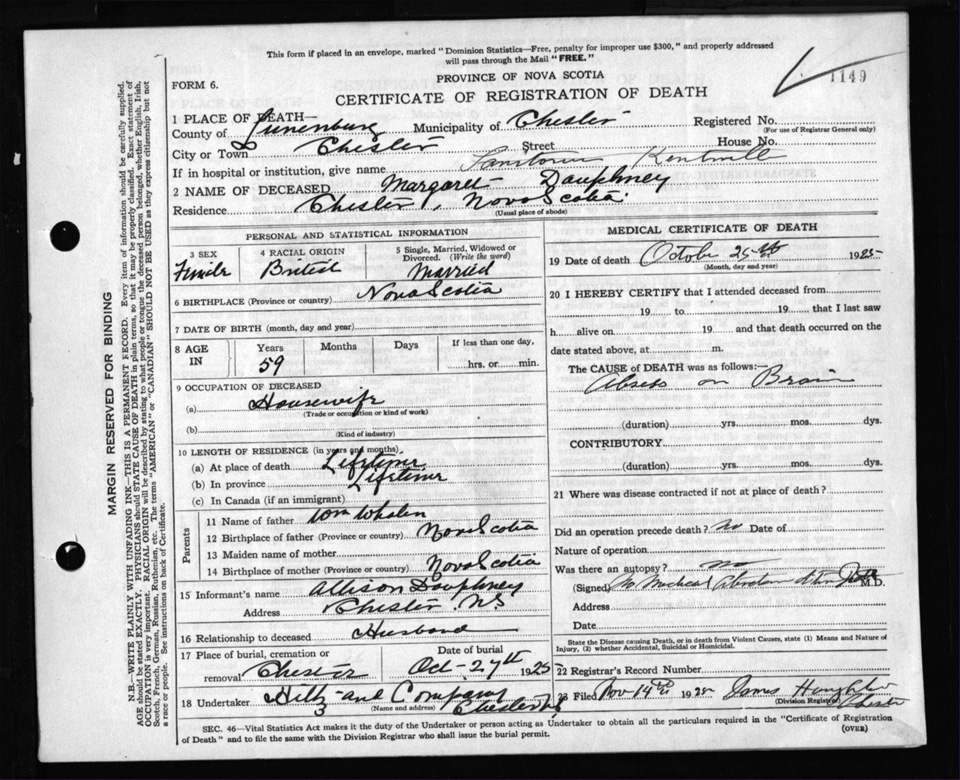 This form if placed in an envelope, marked "Dominion Statistics—Free, penalty for improper use $300," and properly addressed
will pass through the Mail "FREE."
PROVINCE OF NOVA SCOTIA
1149
FORM 6.
CERTIFICATE OF REGISTRATION OF DEATH
1 PLACE OF DEATH—
County of Lunenburg Municipality of Chester Registered No.
(For use of Registrar General only)
City or Town Chester Street House No.
If in hospital or institution, give name Kentville
2 NAME OF DECEASED Margaret Dauphney
Residence Chester, Nova Scotia
(Usual place of abode)
PERSONAL AND STATISTICAL INFORMATION
3 SEX 4 RACIAL ORIGIN 5 Single, Married, Widowed or Divorced. (Write the word)
British Married
6 BIRTHPLACE (Province or country) Nova Scotia
7 DATE OF BIRTH (month, day and year)
8 AGE IN Years Months Days If less than one day,
59 hrs. or min.
9 OCCUPATION OF DECEASED
(a) Housewife
(Trade or occupation or kind of work)
(b)
(Kind of industry)
10 LENGTH OF RESIDENCE (in years and months)
(a) At place of death
(b) In province
(c) In Canada (if an immigrant)
Parents
11 Name of father Tom Whalen
12 Birthplace of father (Province or country) Nova Scotia
13 Maiden name of mother
14 Birthplace of mother (Province or country) Nova Scotia
15 Informant's name Allison Dauphney
Address Chester, NS
16 Relationship to deceased Husband
17 Place of burial, cremation or removal Date of burial
Chester Oct-27th 1925
18 Undertaker and Company
(Name and address) Chester NS
MEDICAL CERTIFICATE OF DEATH
19 Date of death 25th 1925
(Month, day and year)
20 I HEREBY CERTIFY that I attended deceased from
19 to 19 that I last saw
h alive on 19 and that death occurred on the
date stated above, at m.
The CAUSE of DEATH was as follows:—
on Brain
(duration) yrs. mos. dys.
CONTRIBUTORY
(duration) yrs. mos. dys.
21 Where was disease contracted if not at place of death?
Did an operation precede death? No Date of
Nature of operation
Was there an autopsy? No
(Signed) No Medical M.D.
Address
Date
State the Disease causing Death, or in death from Violent Causes, state (1) Means and Nature of
Injury, (2) whether Accidental, Suicidal or Homicidal.
22 Registrar's Record Number
23 Filed Nov 14 James
(Division Registrar)
Chester
SEC. 46—Vital Statistics Act makes it the duty of the Undertaker or person acting as Undertaker to obtain all the particulars required in the "Certificate of Registration
of Death" and to file the same with the Division Registrar who shall issue the burial permit.
(OVER)
MARGIN RESERVED FOR BINDING
N.B.—WRITE PLAINLY WITH UNFADING INK—THIS IS A PERMANENT RECORD. Every item of information should be carefully supplied.
AGE should be stated EXACTLY. PHYSICIANS should STATE CAUSE OF DEATH in plain terms, so that it may be properly classified. Exact statement of
OCCUPATION is very important. RACIAL ORIGIN will be described by stating to what people or tongue the deceased person belonged, whether English, Irish,
Scotch, French, German, Russian, Ruthenian, etc. The terms "AMERICAN" or "CANADIAN" SHOULD NOT BE USED as they express citizenship but not
a race or people. See instructions on back of Certificate.